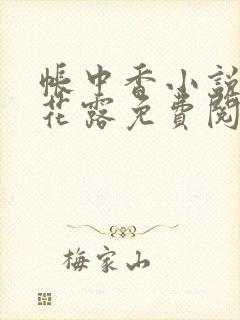 帳中香小說
花露免費閱
梅家山